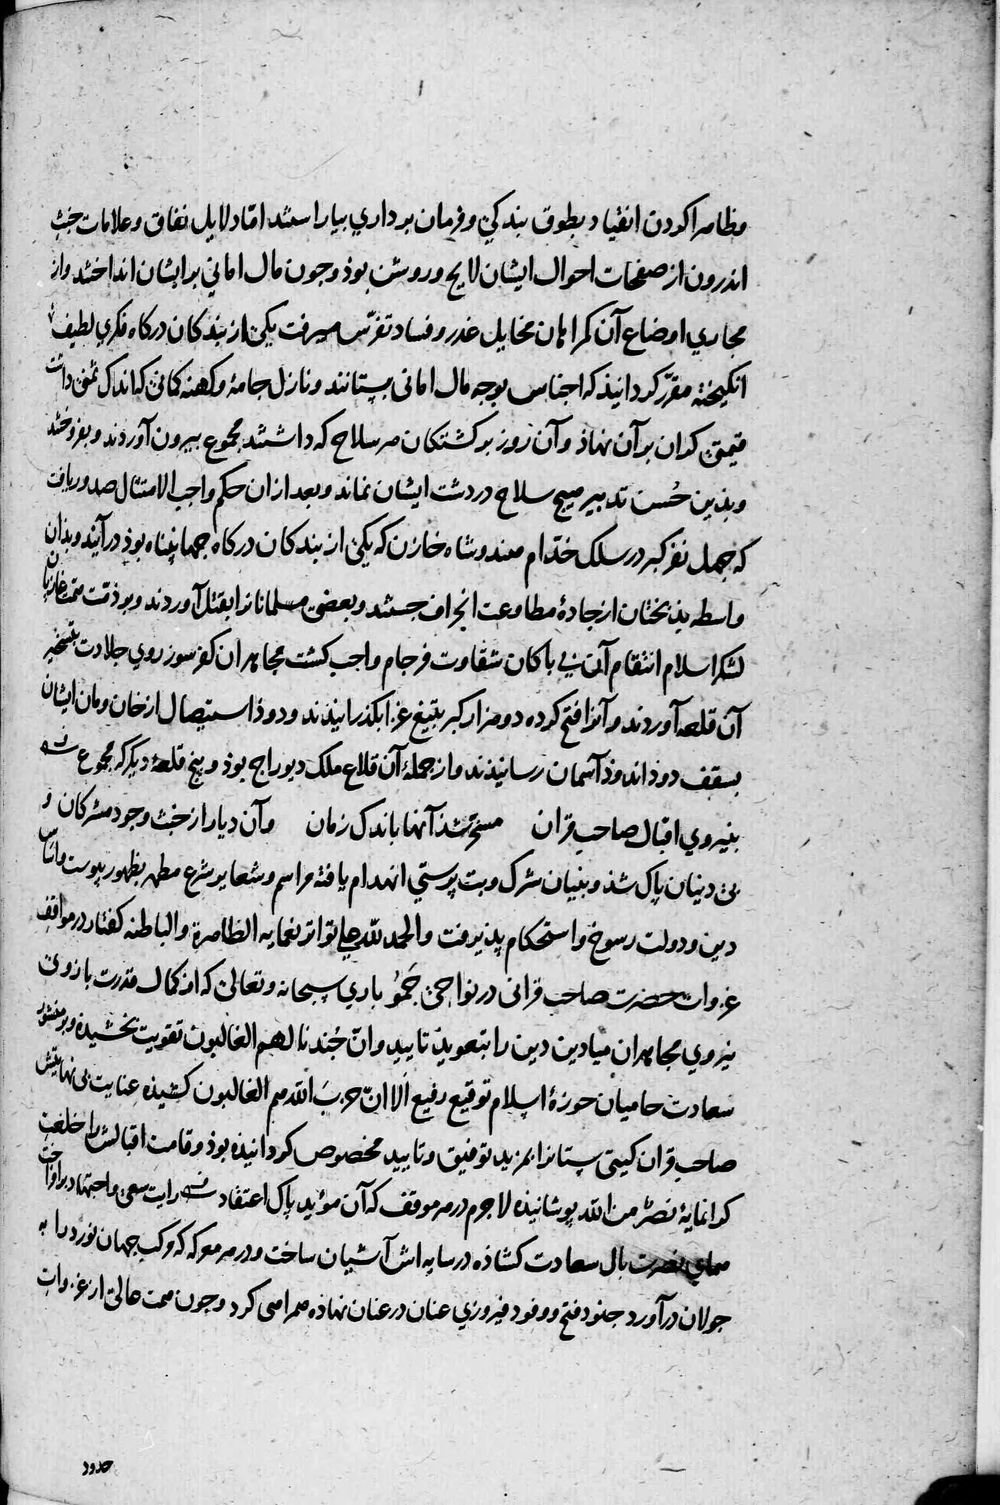 و ظاهرا کردن انقیاد بطوق بندکی و فرمان برداری بیاراستند اما دلایل نفاق و علامات خبث
اندرون از صفحات احوال ایشان لایح و روشن بوذ و جون مال امانی بر ایشان انداختند و از
مجاری اوضاع آن کمراهان مخایل غدر و فساد تفرّس میرفت یکی از بندکان درکاه فکری لطیف
انکیخته مقرّر کردانیذ که اجناس بوجه مال امانی بستانند و نازل جامهٔ و کهنه کمانی که اندک ثمنی داشت
قیمتی کران بر آن نهاذ و آن روز برکشتکان هر سلاح که داشتند مجموع بیرون آوردند و بفروختند
و بذین حُسن تدبیر هیچ سلاح در دست ایشان نماند و بعد از آن حکم واجب الامتثال صدور یافت
که جهل نفر کبر در سلک خدّام هندوشاه خازن که یکی از بندکان درکاه جهانبناه بوذ درآیند و بذان
واسطه بذبختان از جادهٔ مطاوعت انحراف جستند و بعضی مسلمانانرا بقتل آوردند و بر ذمّت همّت غازیان
لشکر اسلام انتقام آن بی باکان شقاوت فرجام واجب کشت مجاهدان کفرسوز روی جلادت بتسخیر
آن قلعه آوردند و آنرا فتح کرده دو هزار کبر بتیغ غزا بکذرانیذند و دوذ استیصال از خان و مان ایشان
بسقف دوذ اندوذ آسمان رسانیذند و از جملهٔ آن قلاع ملک دیوراج بوذ و پنج قلعهٔ دیکر که مجموع
بنیروی اقبال صاحب قران مسخّر شذ آنها باندک زمان و آن دیار از خبث وجود مشرکان و
بی دینان پاک شذ و بنیان شرک و بت پرستی انهدام یافته مراسم و شعایر شرع مطهر بظهور پیوست و اساس
دین و دولت رسوخ و استحکام پذیرفت و الحمد للّه علی تواتر نعمایه الظاهرة و الباطنه کفتار در مواقف
غزوات حضرت صاحب قرانی در نواحی جَمُو باری سبحانه و تعالی که از کمال قدرت بازوی
نیروی مجاهدان میادین دین را بتعویذ تایید و انّ جُندنا لهم الغالبون تقویت بخشیذه و بر منشور
سعادت حامیان حوزهٔ اسلام توقیع رفیع الا انّ حزبَ اللّه هم الغالبون کشیذه عنایت بی نهایتش
صاحب قران کیتی ستانرا بمزید توفیق و تایید مخصوص کردانیذه بوذ و قامت اقبالش را خلعت
کرانمایهٔ نصرٌ من اللّه پوشانیذه لاجرم در هر موقف که آن مؤید پاک اعتقاد رایت سعی و اجتهاد برافراخت
همای نصرت بال سعادت کشاذه در سایه اش آشیان ساخت و در هر معرکه که مرکب جهان نورد را به
جولان درآورد جنود فتح و وفود فیروزی عنان در عنان نهاذه همراهی کرد و جون همت عالی از غزوات
حدود